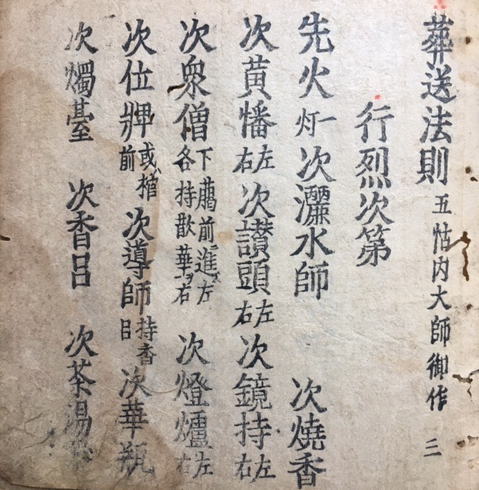 葬送法則 五帖内大師御作 三
行烈次第
先火灯一 次灑水師 次燒香
次黄幡左右 次讃頭左右 次鏡持左右
次衆僧下﨟前進左右各持散華ヲ 次燈爐左右
次位牌或棺前 次導師持香呂 次華瓶
次燭臺 次香呂 次茶湯